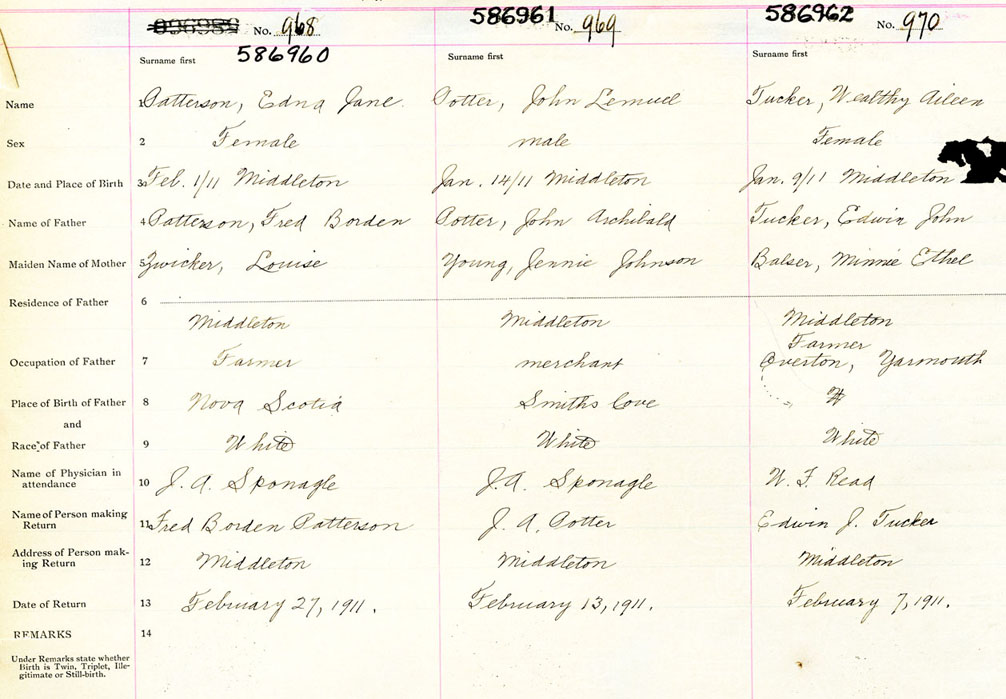 No. 968 586961 No. 969 586962 No. 970
586960
Surname first Surname first Surname first
Name 1 Patterson, Edna Jane. Potter, John Lemuel Tucker, Wealthy Aileen
Sex 2 Female male Female
Date and Place of Birth 3 Feb. 1/11 Middleton Jan. 14/11 Middleton Jan. 9/11 Middleton
Name of Father 4 Patterson, Fred Borden Potter, John Archibald Tucker, Edwin John
Maiden Name of Mother 5 Zwicker, Louise Young, Jennie Johnson Balser, Minnie Ethel
Residence of Father 6
Middleton Middleton Middleton
Farmer
Occupation of Father 7 Farmer merchant Overton, Yarmouth
Place of Birth of Father 8 Nova Scotia Smiths Cove W
and
Race of Father 9 White White White
Name of Physician in
attendance 10 J. A. Sponagle J. A. Sponagle W. F. Read
Name of Person making
Return 11 Fred Borden Patterson J. A. Potter Edwin J. Tucker
Address of Person mak-
ing Return 12 Middleton Middleton Middleton
Date of Return 13 February 27, 1911. February 13, 1911. February 7, 1911.
REMARKS 14
Under Remarks state whether
Birth is Twin, Triplet, Ille-
gitimate or Still-birth.